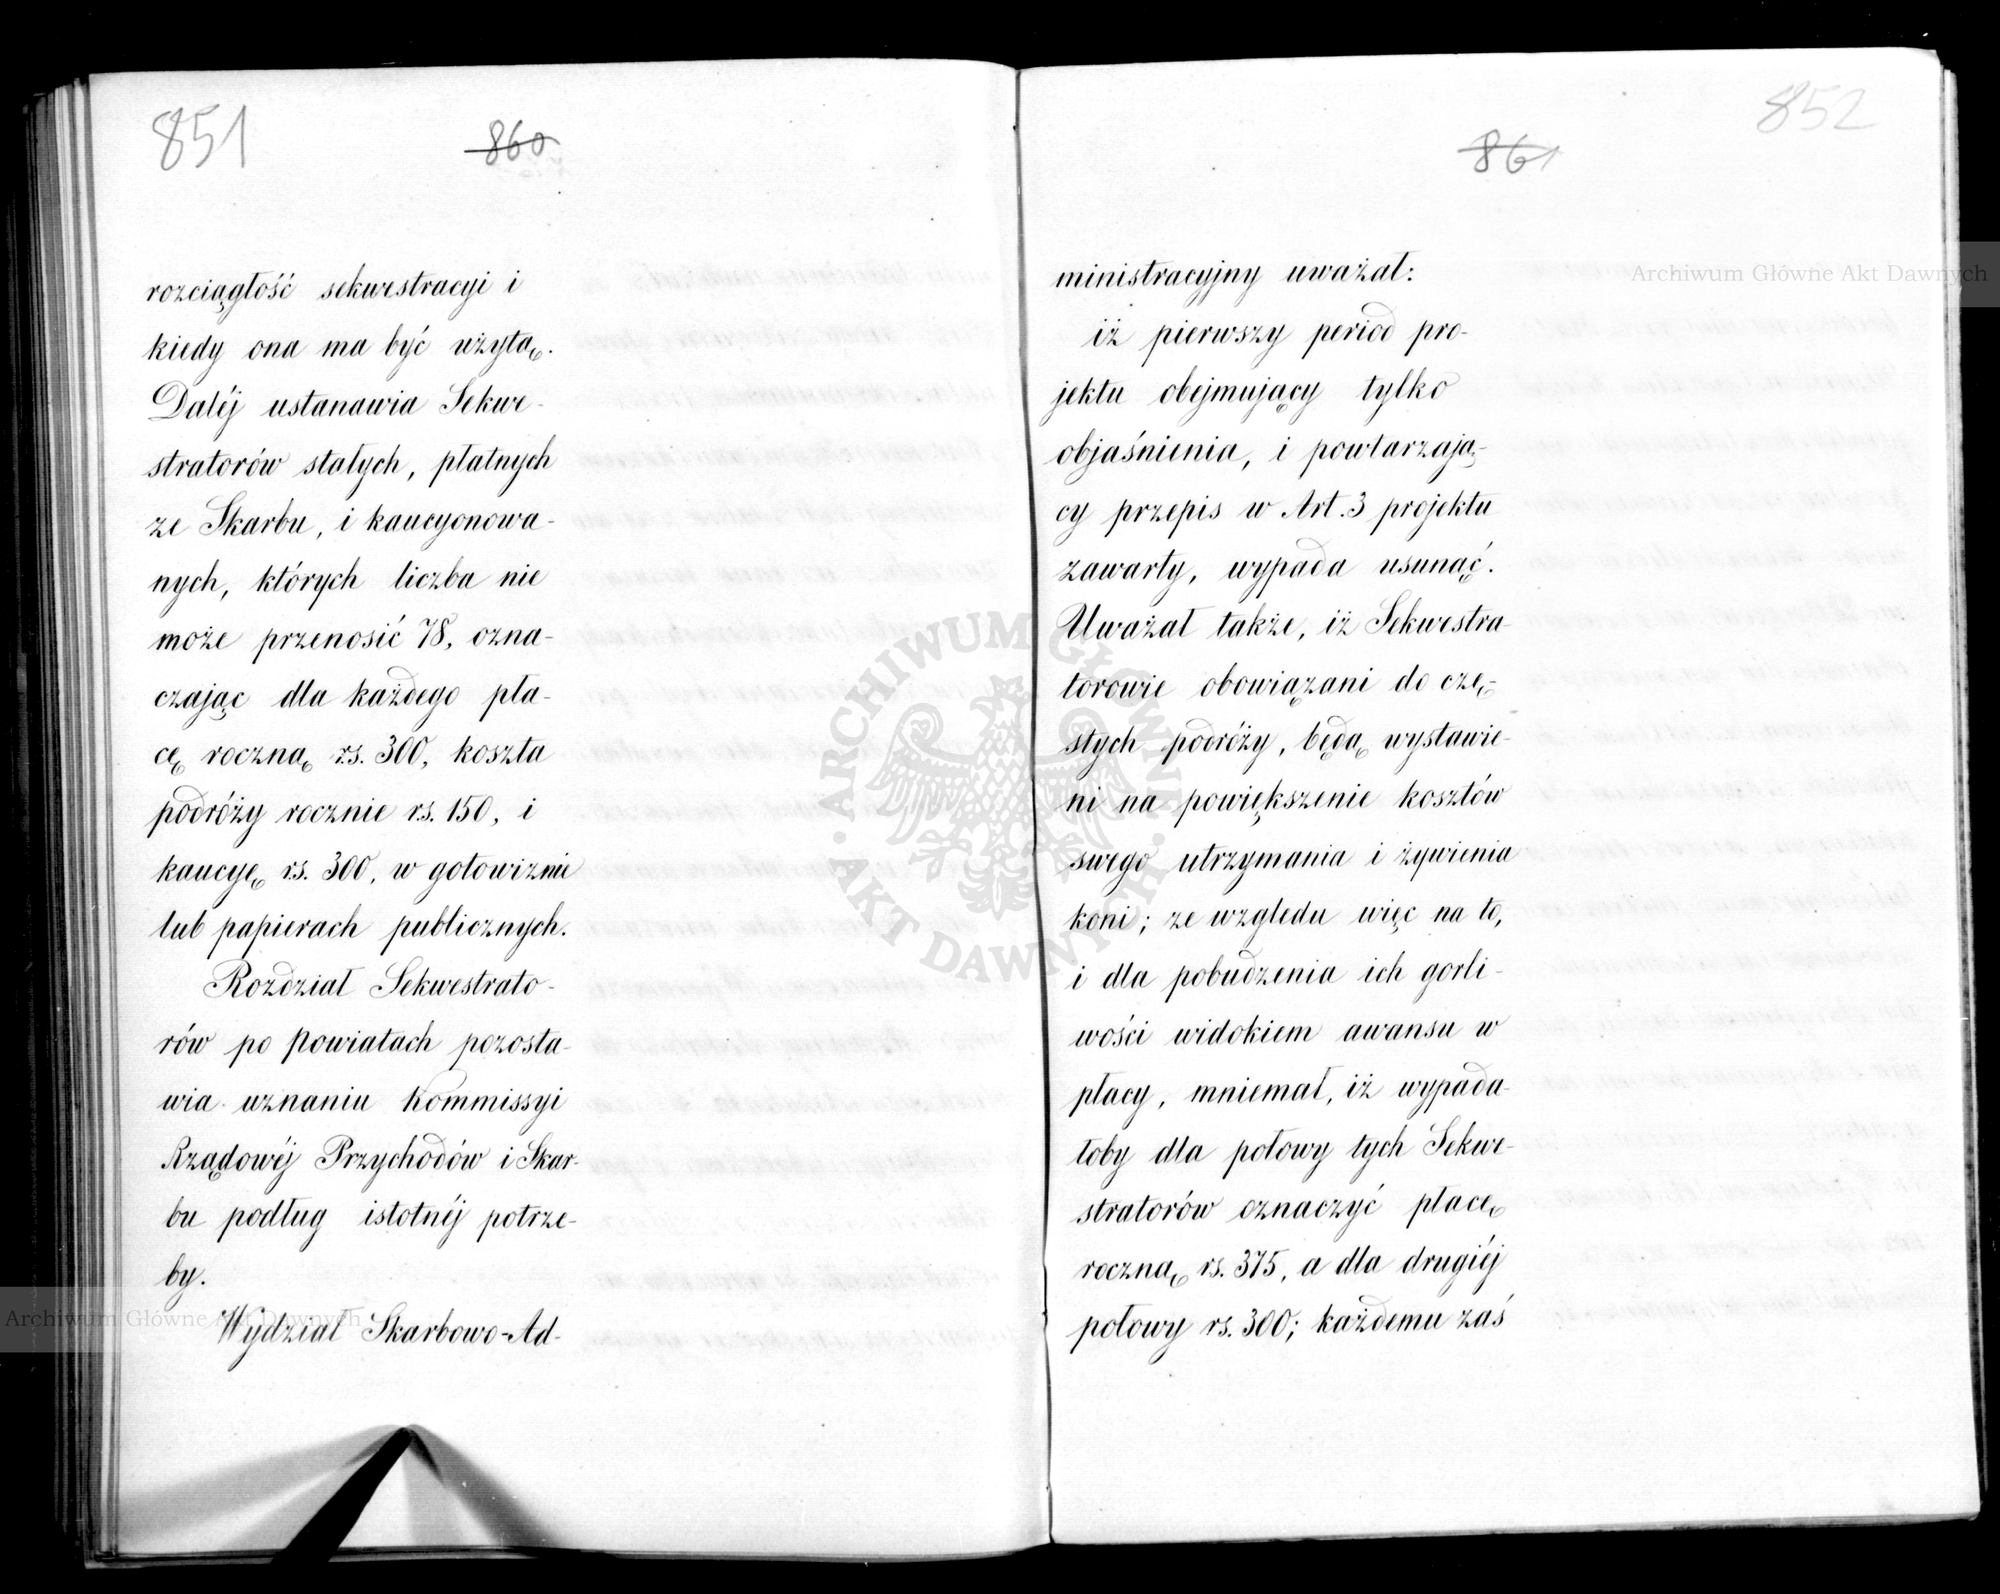 851
860
rozciągłość sekwestracyi i
kiedy ona ma być użytą.
Daléj ustanawia Sekwe-
stratorów stałych, płatnych
ze Skarbu, i kaucyonowa-
nych, których liczba nie
może przenosić 78, ozna-
czając dla każdego pła-
cę roczną rs. 300, koszta
podróży rocznie rs. 150, i
kaucyę rs. 300, w gotowiznie
lub papierach publicznych.
Rozdział Sekwestrato-
rów po Powiatach pozosta-
wia uznaniu Kommissyi
Rządowéj Przychodów i Skar-
bu podług istotnéj potrze-
by.
Wydział Skarbowo-Ad-
852
861
ministracyjny uważał:
iż pierwszy period pro-
jektu obejmujący tylko
objaśnienia, i powtarzają-
cy przepis w Art. 3 projektu
zawarty, wypada usunąć.
Uważał także, iż Sekwestra-
torowie obowiązani do czę-
stych podróży, będą wystawie-
ni na powiększenie kosztów
swego utrzymania i żywienia
koni; ze względu więc na to,
i dla pobudzenia ich gorli-
wości widokiem awansu w
płacy, mniemał, iż wypada-
łoby dla połowy tych Sekwe-
stratorów oznaczyć płacę
roczną rs. 375, a dla drugiéj
połowy rs. 300; każdemu zaś
Archiwum Główne Akt Dawnych
Archiwum Główne Akt Dawnych
ARCHIWUM GŁÓWNE · AKT DAWNYCH ·